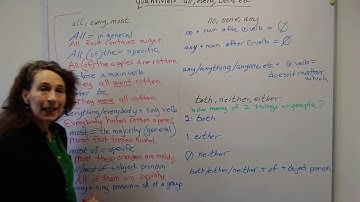 Quantifiers: all, every, both, etc
all, every, most
All = in general
All fruit contains sugar.
All (of) the = specific
All (of) the apples are rotten
before a main verb
They all went rotten.
be
They were all rotten.
everything/everybody + sing verb
Everybody hates rotten apples
most = the majority (general)
Most fruit tastes sweet
most of = specific
Most these oranges are mouldy
all/most of + object pronoun
All of them are
+ sing pronoun = all of a group
no, none, any
no + noun +ve verb = 0
any + noun verb = 0
any/anything/anyone etc + verb =
doesn't matter
which
both, neither, either
how many of 2 things or people?
2: both
1: either
0: neither
both/either/neither + of + object pronoun